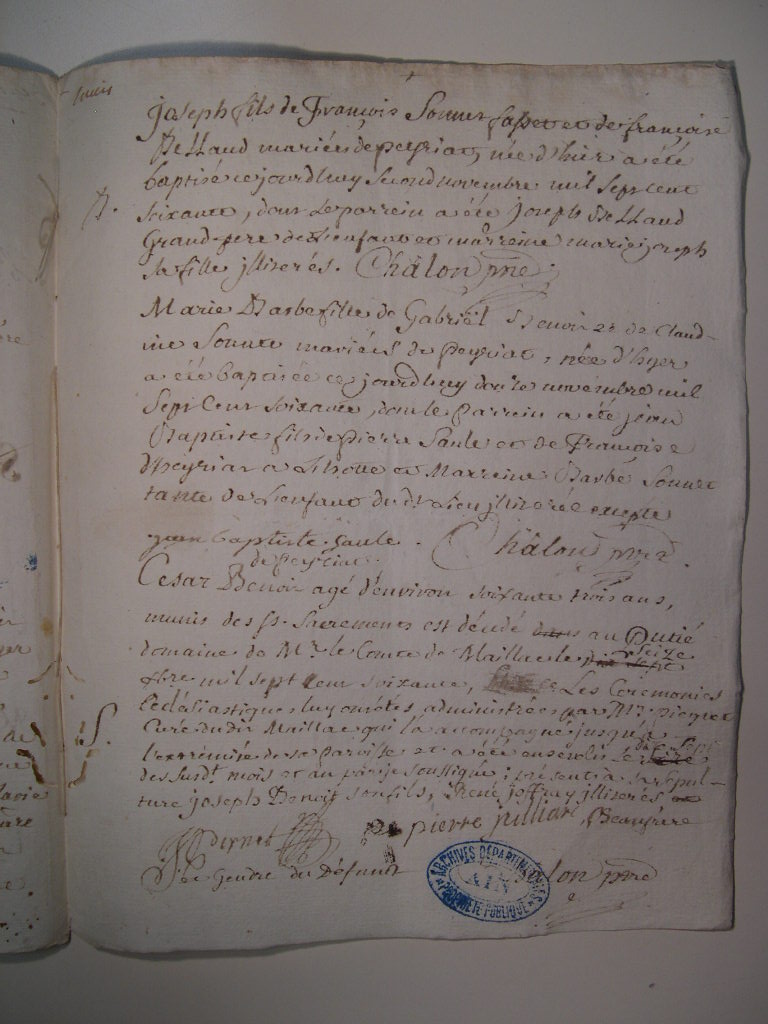 Joseph fils de François Sonnet et de françoise
mariés de peyriat, née d'hier a été
baptisé cejourdhuy second novembre mil sept cent
soixante, dont le parrein a été joseph
Grand-pere de L'enfant et marreine marie joseph
sa fille jlliterés. Châlon pnre
B.
Marie Barbe fille de Gabriël Benoit & de Claud-
ine Sonnet mariés de Peyriat, née d'hyer
a été baptisée ce jourdhuy novembre mil
Sept Cent soixante, dont le parrein a été jean
Baptiste fils de pierre Gaule et de Françoise
d'heyriat a et Marreine Barbe Sonnet
tante de L'enfant du dt Lieu jlliterée excepté
jean baptiste gaule. Châlon pnre.
de peyriat.
Cesar Benoit agé d'environ soixante trois ans,
munis des Ss. Sacrements est décédé au
domaine de Mr. le Comte de Maillac le seize
mil sept Cent soixante, Les Ceremonies
Ecclésiastiques luy ont étés administrées par Mr. picquet
Curé du dit Maillac qui l'a accompagné jusqu'a
l'extrémité de sa paroisse et a été enseveli Le dix sept
des susdt. mois et an par je soussigné; présent a sa sepul-
ture joseph Benoit son fils, René joffray jlliterés
S.
pierre julliart, Beaufrere
Gendre du Défunct Châlon pnre
ARCHIVES DÉPARTEMENTALES
AIN
PROPRIÉTÉ PUBLIQUE